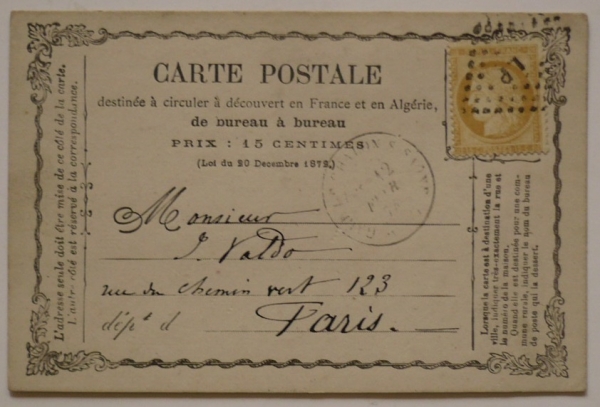 CARTE POSTALE
destinée à circuler à découvert en France et en Algérie,
de bureau à bureau
PRIX : 15 CENTIMES
(Loi du 20 Decembre 1872.)
Monsieur
J. Valdo
rue du chemin vert 123
dépt d
Paris.
L'adresse seule doit être mise de ce côté de la carte.
L'autre côté est réservé à la correspondance.
Lorsque la carte est à destination d'une
ville, indiquer très-exactement la rue et
le numéro de la maison.
Quand elle est destinée pour une com-
mune rurale, indiquer le nom du bureau
de poste qui la dessert.